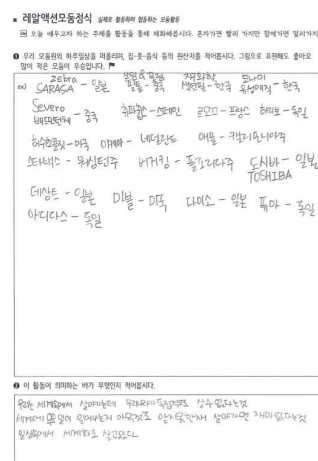 ▪ 레알액션모둠정식 실제로 활동하며 협동하는 모둠활동
오늘 배우고자 하는 주제를 활동을 통해 체화해봅시다. 혼자가면 빨리 가지만 함께가면 멀리가지
❶ 우리 모둠원의 하루일상을 떠올리며, 집-옷-음식 등의 원산지를 적어봅시다. 그림으로 표현해도 좋아요
많이 적은 모둠이 우승입니다.
ex) Zebra SARASA - 일본 필통 - 중국 색연필 - 한국 도나미 유성매직 - 한국
Severo 배드민턴채 - 중국 츄파춥스 - 스페인 프랑스 하리보 - 독일
미국 이케아 - 네덜란드 애플 - 캘리포니아주
스타벅스 - 워싱턴주 버거킹 - 플로리다주 도시바 - 일본
TOSHIBA
데상트 - 일본 미국 다이소 - 일본 퓨마 - 독일
아디다스 - 독일
❷ 이 활동이 의미하는 바가 무엇인지 적어봅시다.
우리는 세계속에서 살아가는데
세계에 일어나는지 아무것도 알지못한채 살아가면 재미없다는것
일상속에서 세계화도